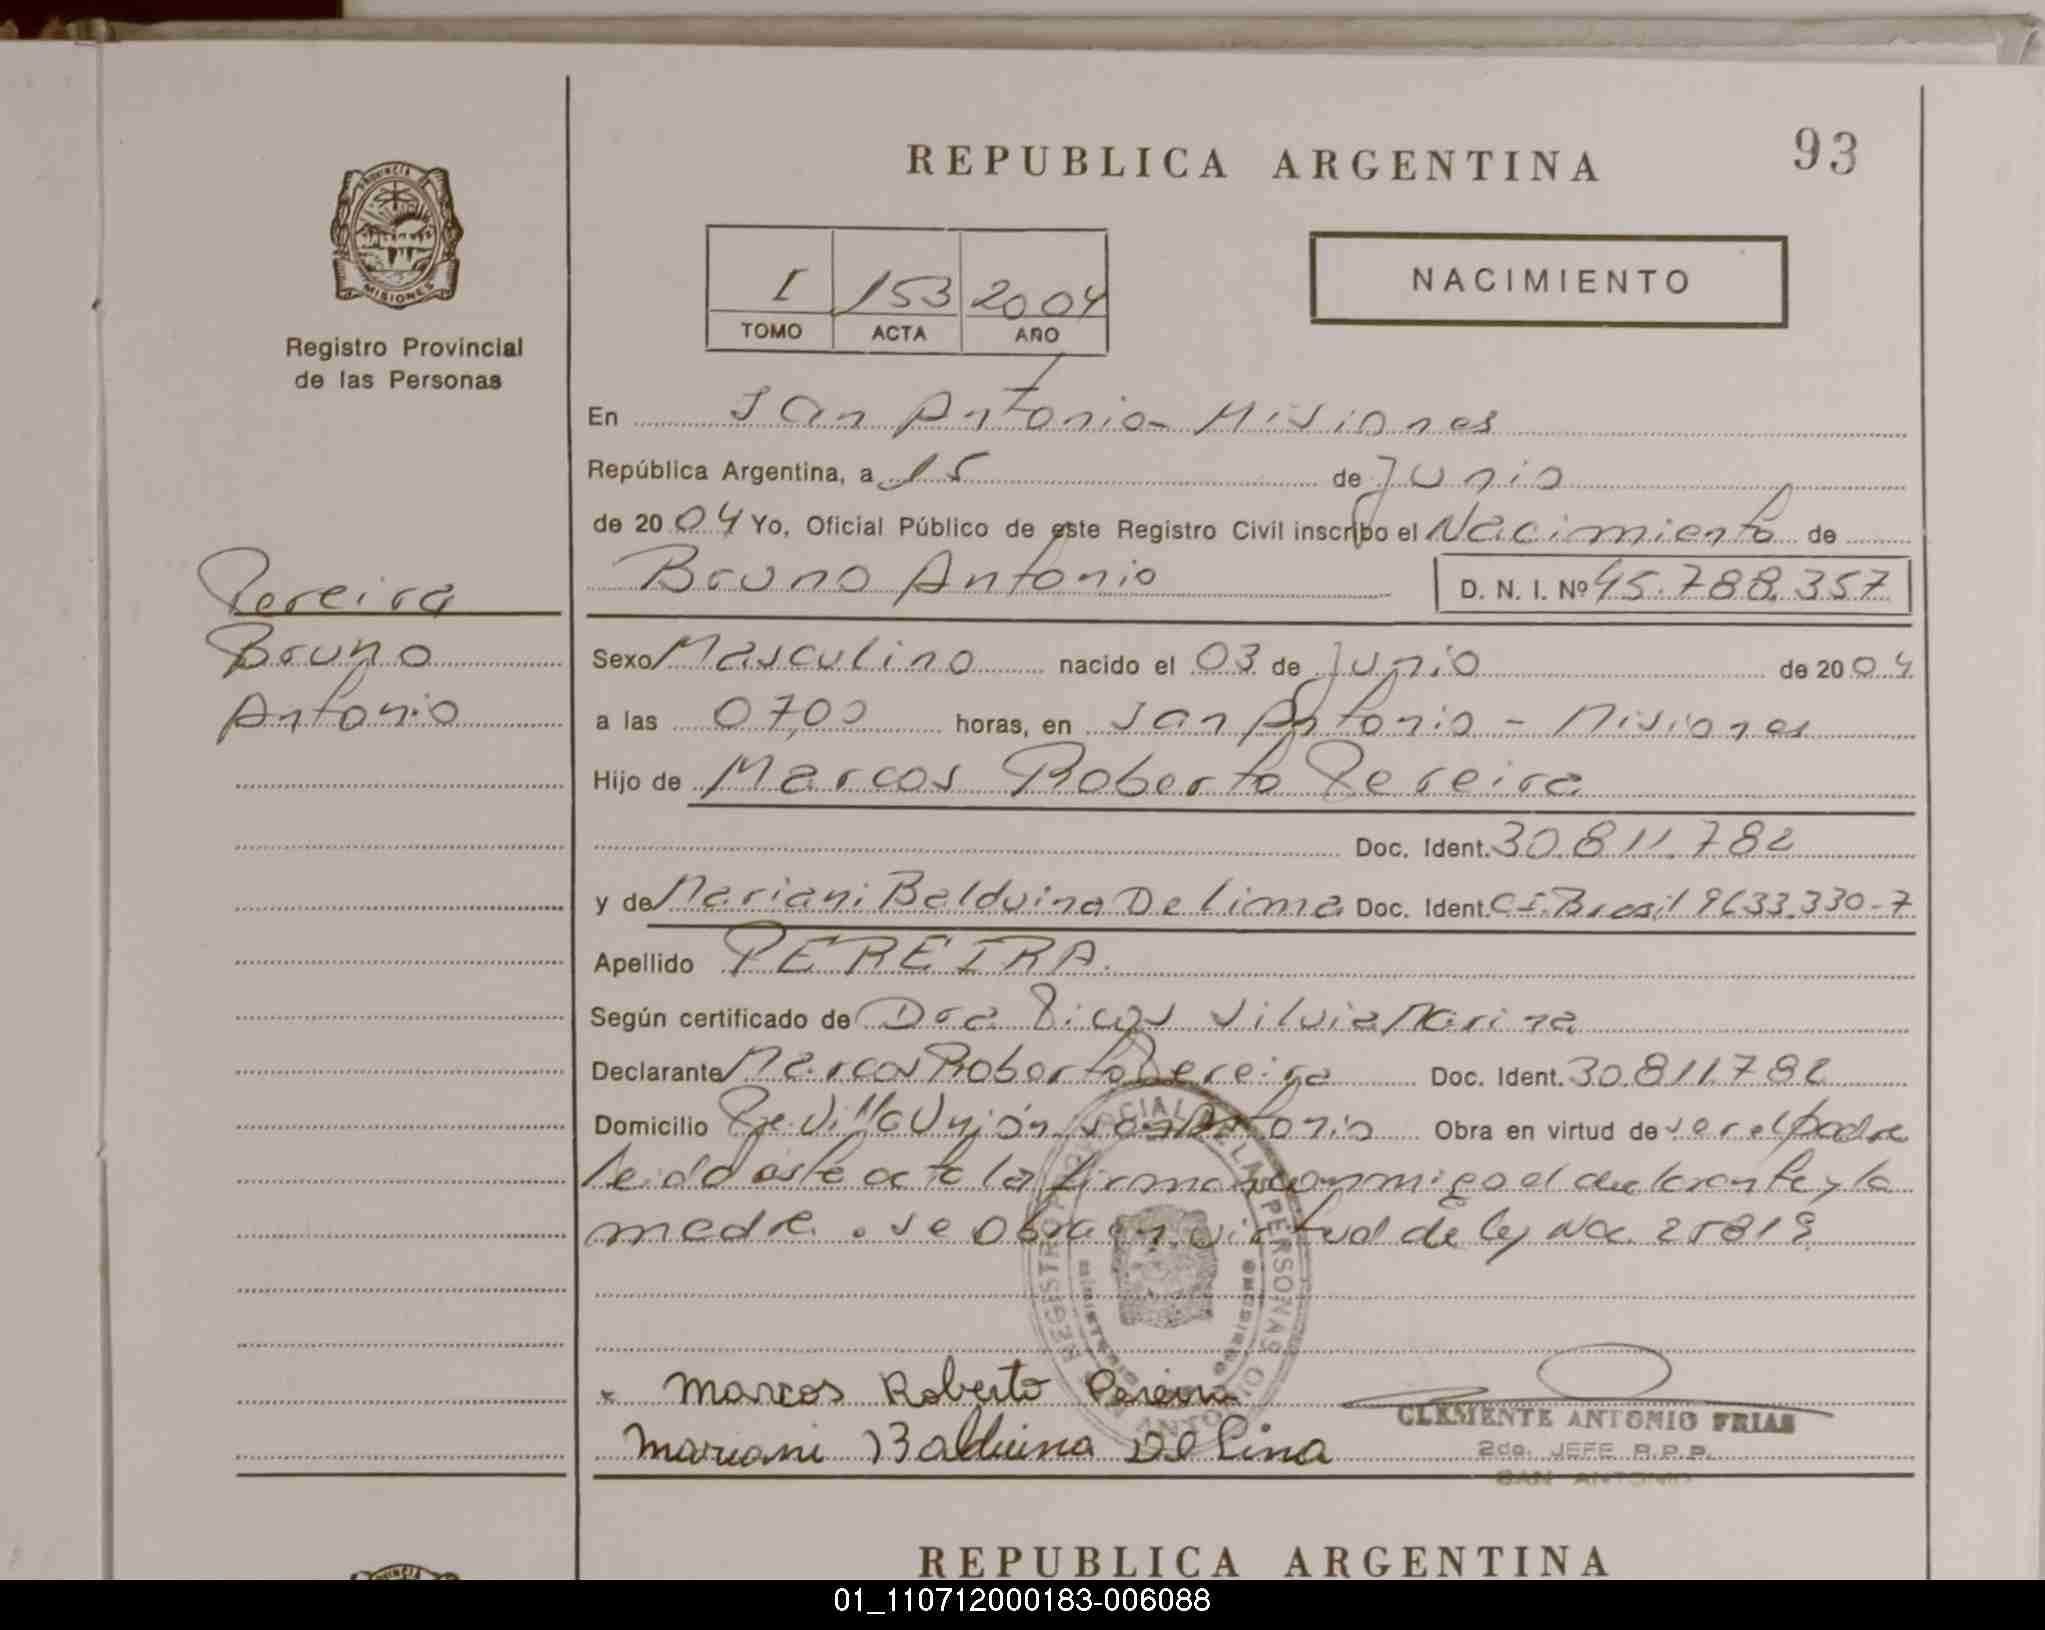 93
REPUBLICA ARGENTINA
PROVINCIA DE
MISIONES
Registro Provincial
de las Personas
I 153 2004
TOMO ACTA AÑO
NACIMIENTO
En San Antonio - Misiones
República Argentina, a 15 de Junio
de 2004 Yo, Oficial Público de este Registro Civil inscribo el Nacimiento de
Bruno Antonio D. N. I. Nº 45.788.357
Pereira
Bruno
Antonio
Sexo Masculino nacido el 03 de Junio de 2004
a las 07,00 horas, en San Antonio - Misiones
Hijo de Marcos Roberto Pereira
Doc. Ident. 30.811.782
y de Mariani Balduina De Lima Doc. Ident. C.I. Brasil 9633.330-7
Apellido PEREIRA.
Según certificado de Dra Silvia Marina
Declarante Marcos Roberto Pereira Doc. Ident. 30.811.782
Domicilio Pje. Villa Unión San Antonio Obra en virtud de ser el padre
leido este acta la firman conmigo el declarante y la
madre. se obra en virtud de ley Nac. 25819
REGISTRO PROVINCIAL DE LAS PERSONAS
MINISTERIO DE GOBIERNO
Marcos Roberto Pereira
Mariani Balduina De Lima
CLEMENTE ANTONIO FRIAS
2do. JEFE R.P.P.
SAN ANTONIO
REPUBLICA ARGENTINA
01_110712000183-006088